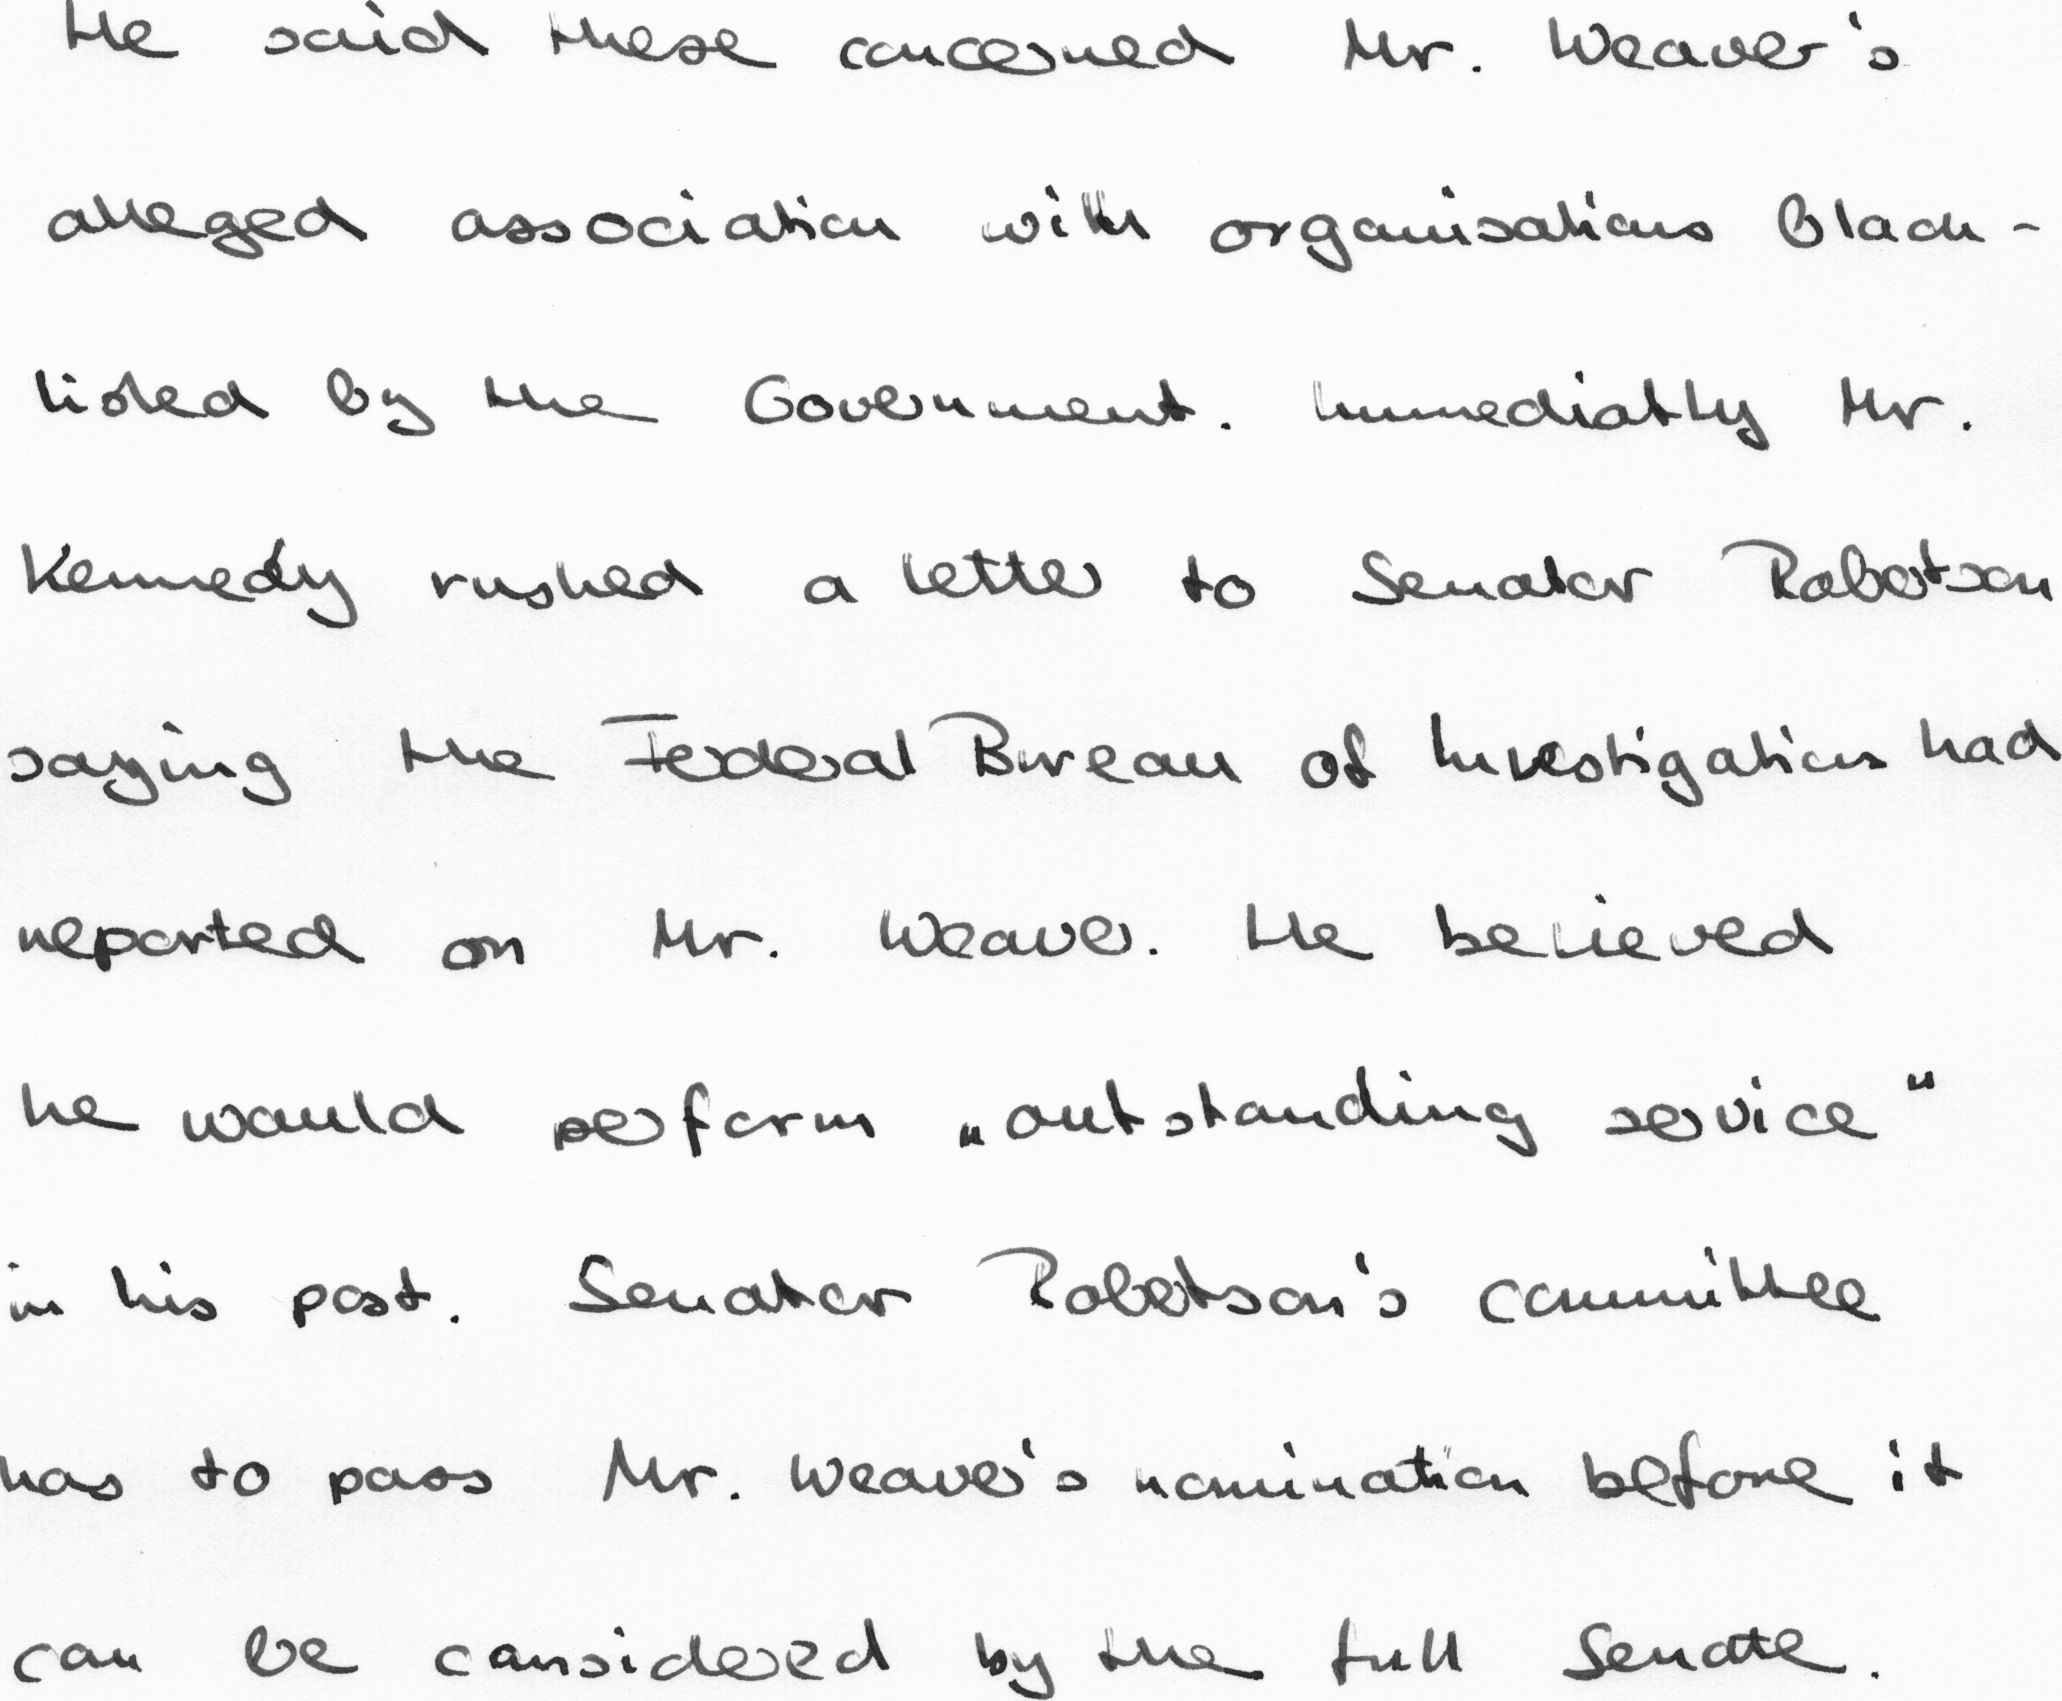 He said these concerned Mr. Weaver's
alleged association with organisations black-
listed by the Government. Immediatly Mr.
Kennedy rushed a letter to Senator Robertson
saying the Federal Bureau of Investigation had
reported on Mr. Weaver. He believed
he would perform „outstanding service"
in his post. Senator Robertson's committee
has to pass Mr. Weaver's nomination before it
can be considered by the full Senate.